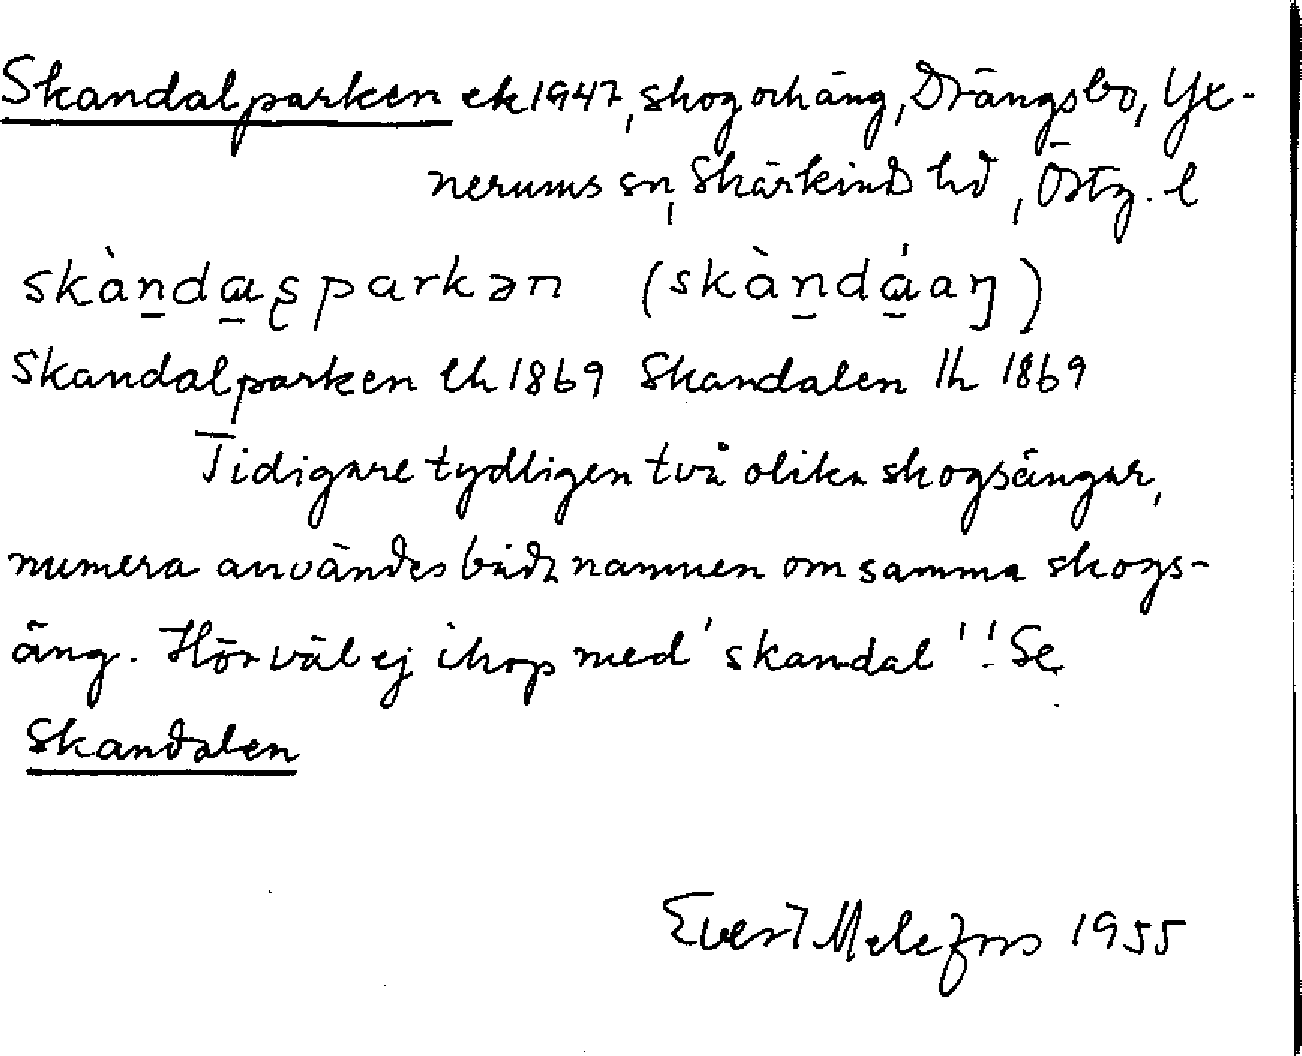 Skandalparken ek 1947, skog och äng, Drängsbo, Yx-
nerums sn, Skärkind hd, Östg. l
skàndaʂparkən (skàndáaŋ)
Skandalparken lh 1869 Skandalen lh 1869
Tidigare tydligen två olika skogsängar,
numera användes båda namnen om samma skogs-
äng. Hör väl ej ihop med 'skandal'! Se
Skandalen
Evert Melefors 1955